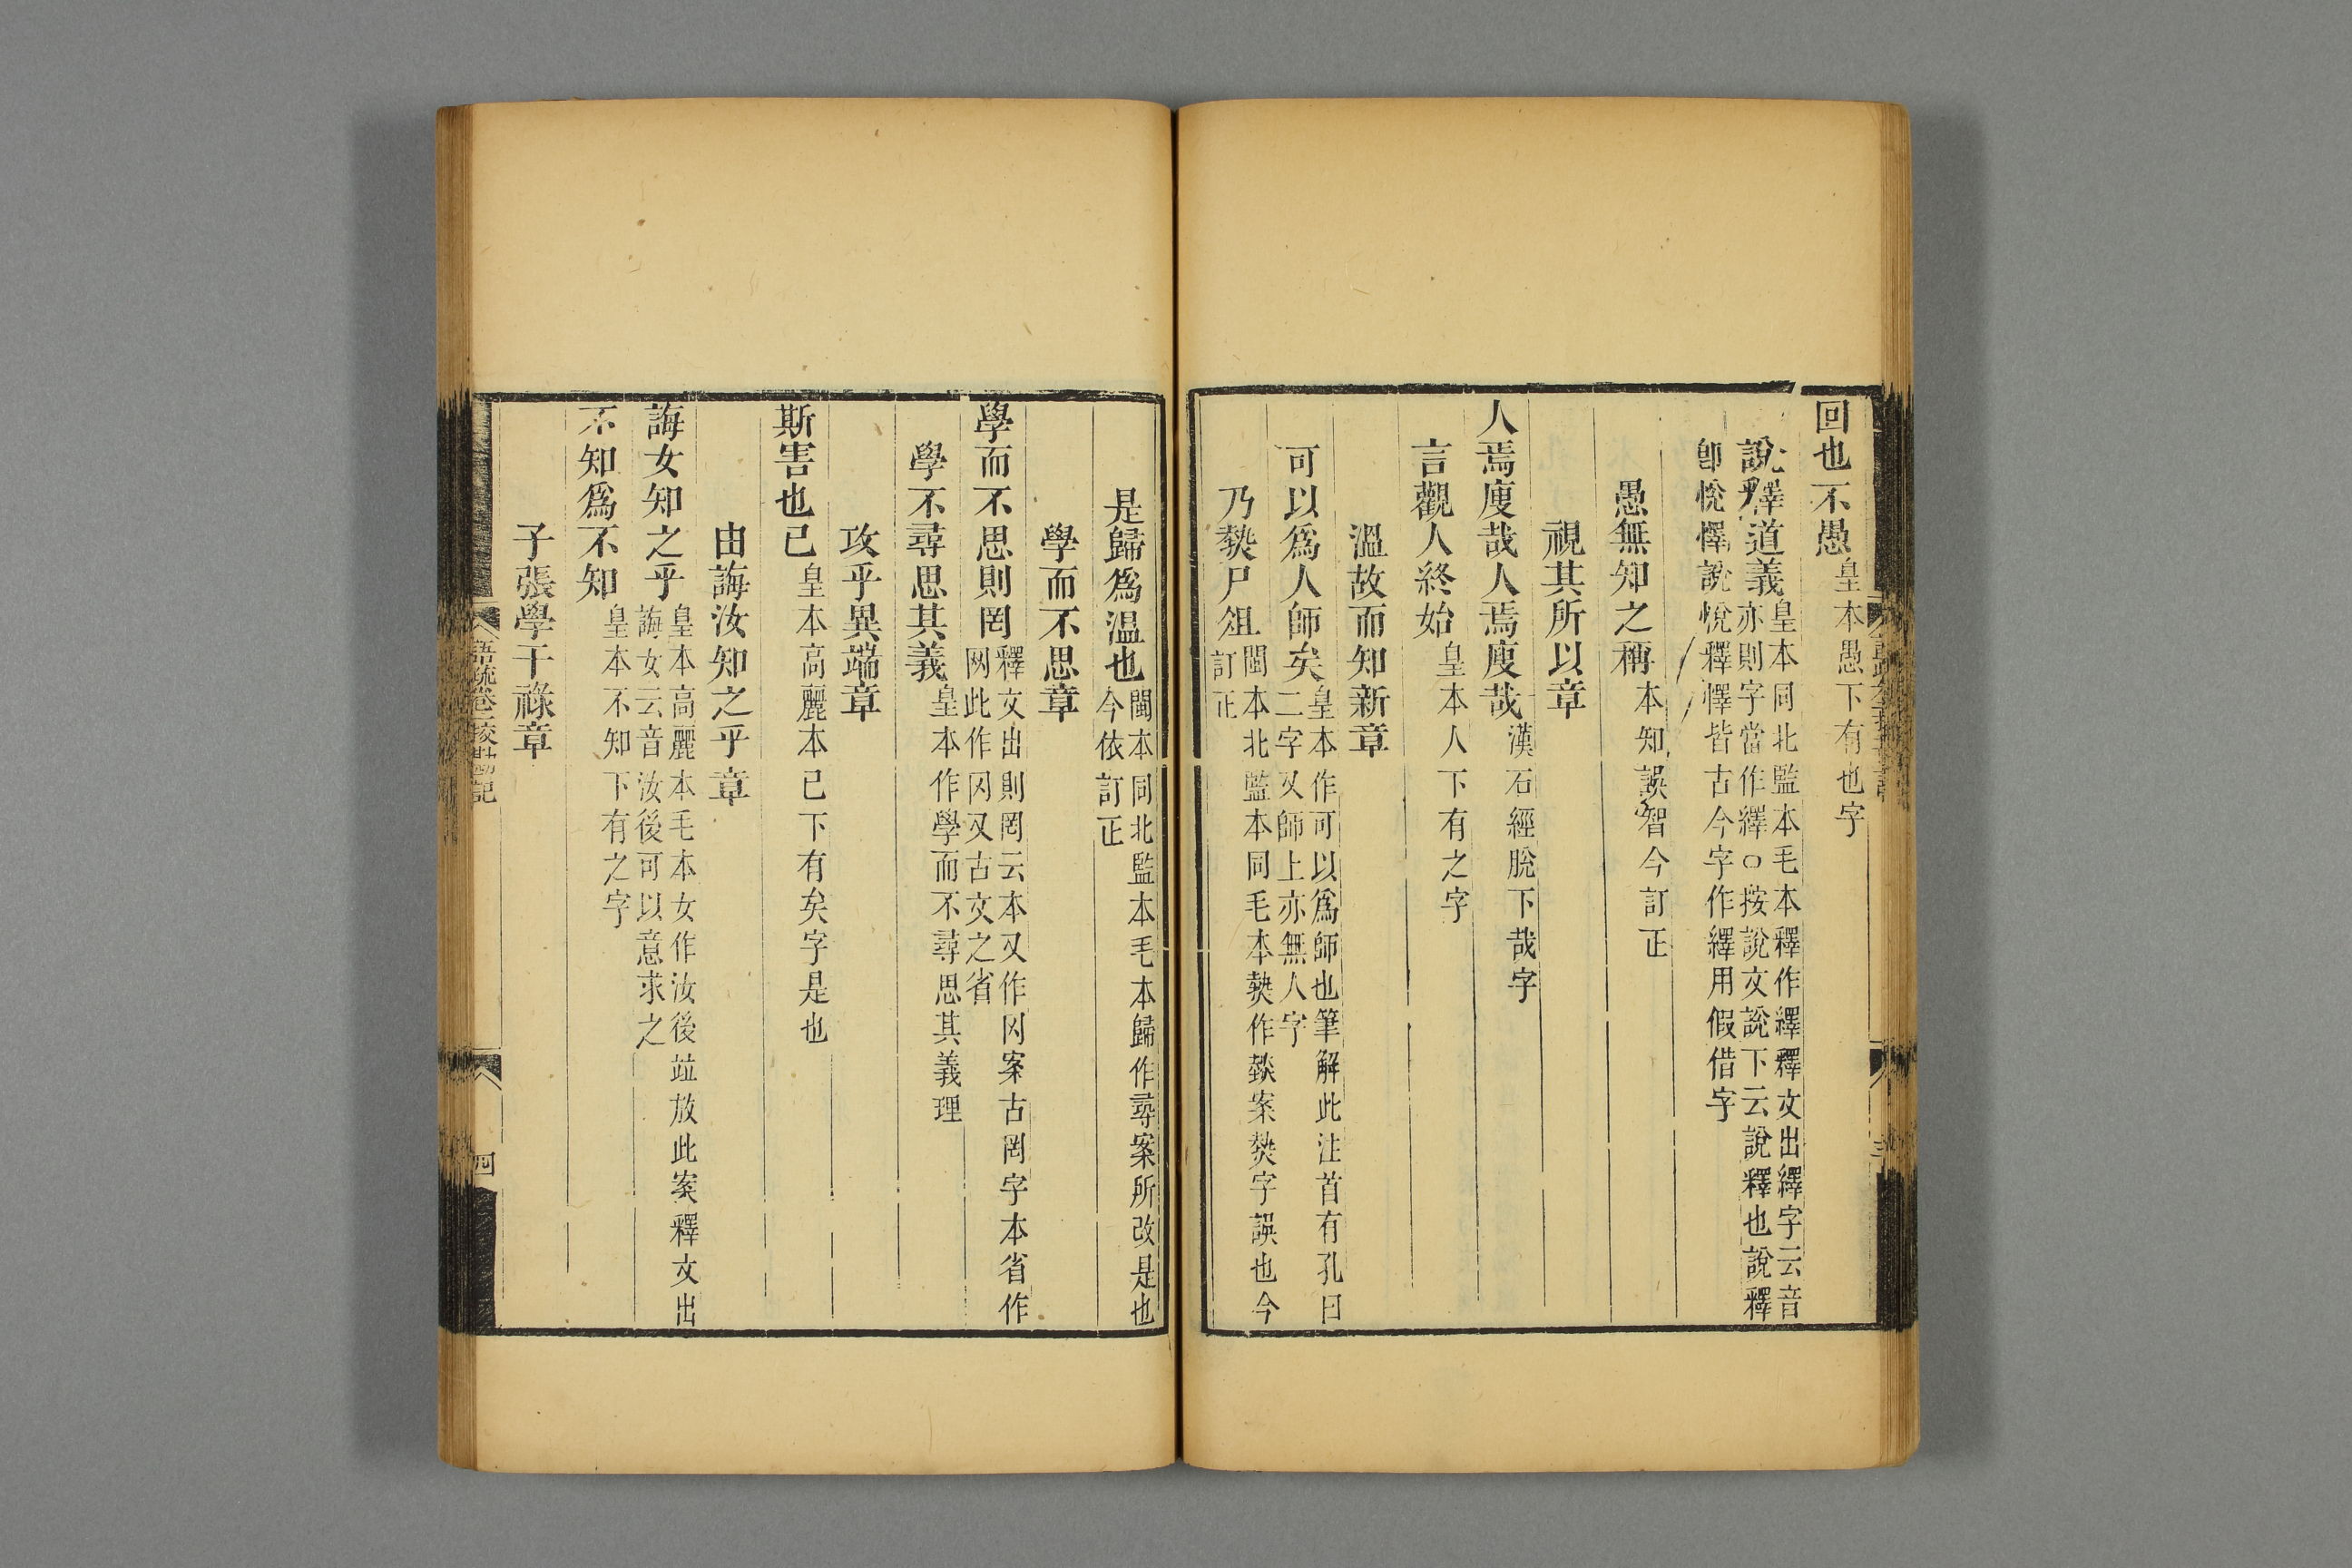 回也不愚皇本愚下有也字
說釋道義皇本同北監本毛本釋作繹釋文出繹字云音
亦則字當作繹○按說文說下云說釋也說釋
卽悅懌說悅釋懌皆古今字作繹用假借字
愚無知之稱本知誤智今訂正
視其所以章
人焉廋哉人焉廋哉漢石經脫下哉字
言觀人終始皇本人下有之字
溫故而知新章
可以爲人師矣皇本作可以爲師也筆解此注首有孔曰
二字又師上亦無人字
乃㷅尸俎閩本北監本同毛本㷅作燅案㷅字誤也今
訂正
是歸爲溫也閩本同北監本毛本歸作尋案所改是也
今依訂正
學而不思章
學而不思則罔釋文出則罔云本又作冈案古罔字本省作
网此作冈又古文之省
學不尋思其義皇本作學而不尋思其義理
攻乎異端章
斯害也已皇本高麗本已下有矣字是也
由誨汝知之乎章
誨女知之乎皇本高麗本毛本女作汝後竝放此案釋文出
誨女云音汝後可以意求之
不知爲不知皇本不知下有之字
子張學干祿章
語疏卷二挍勘記
四